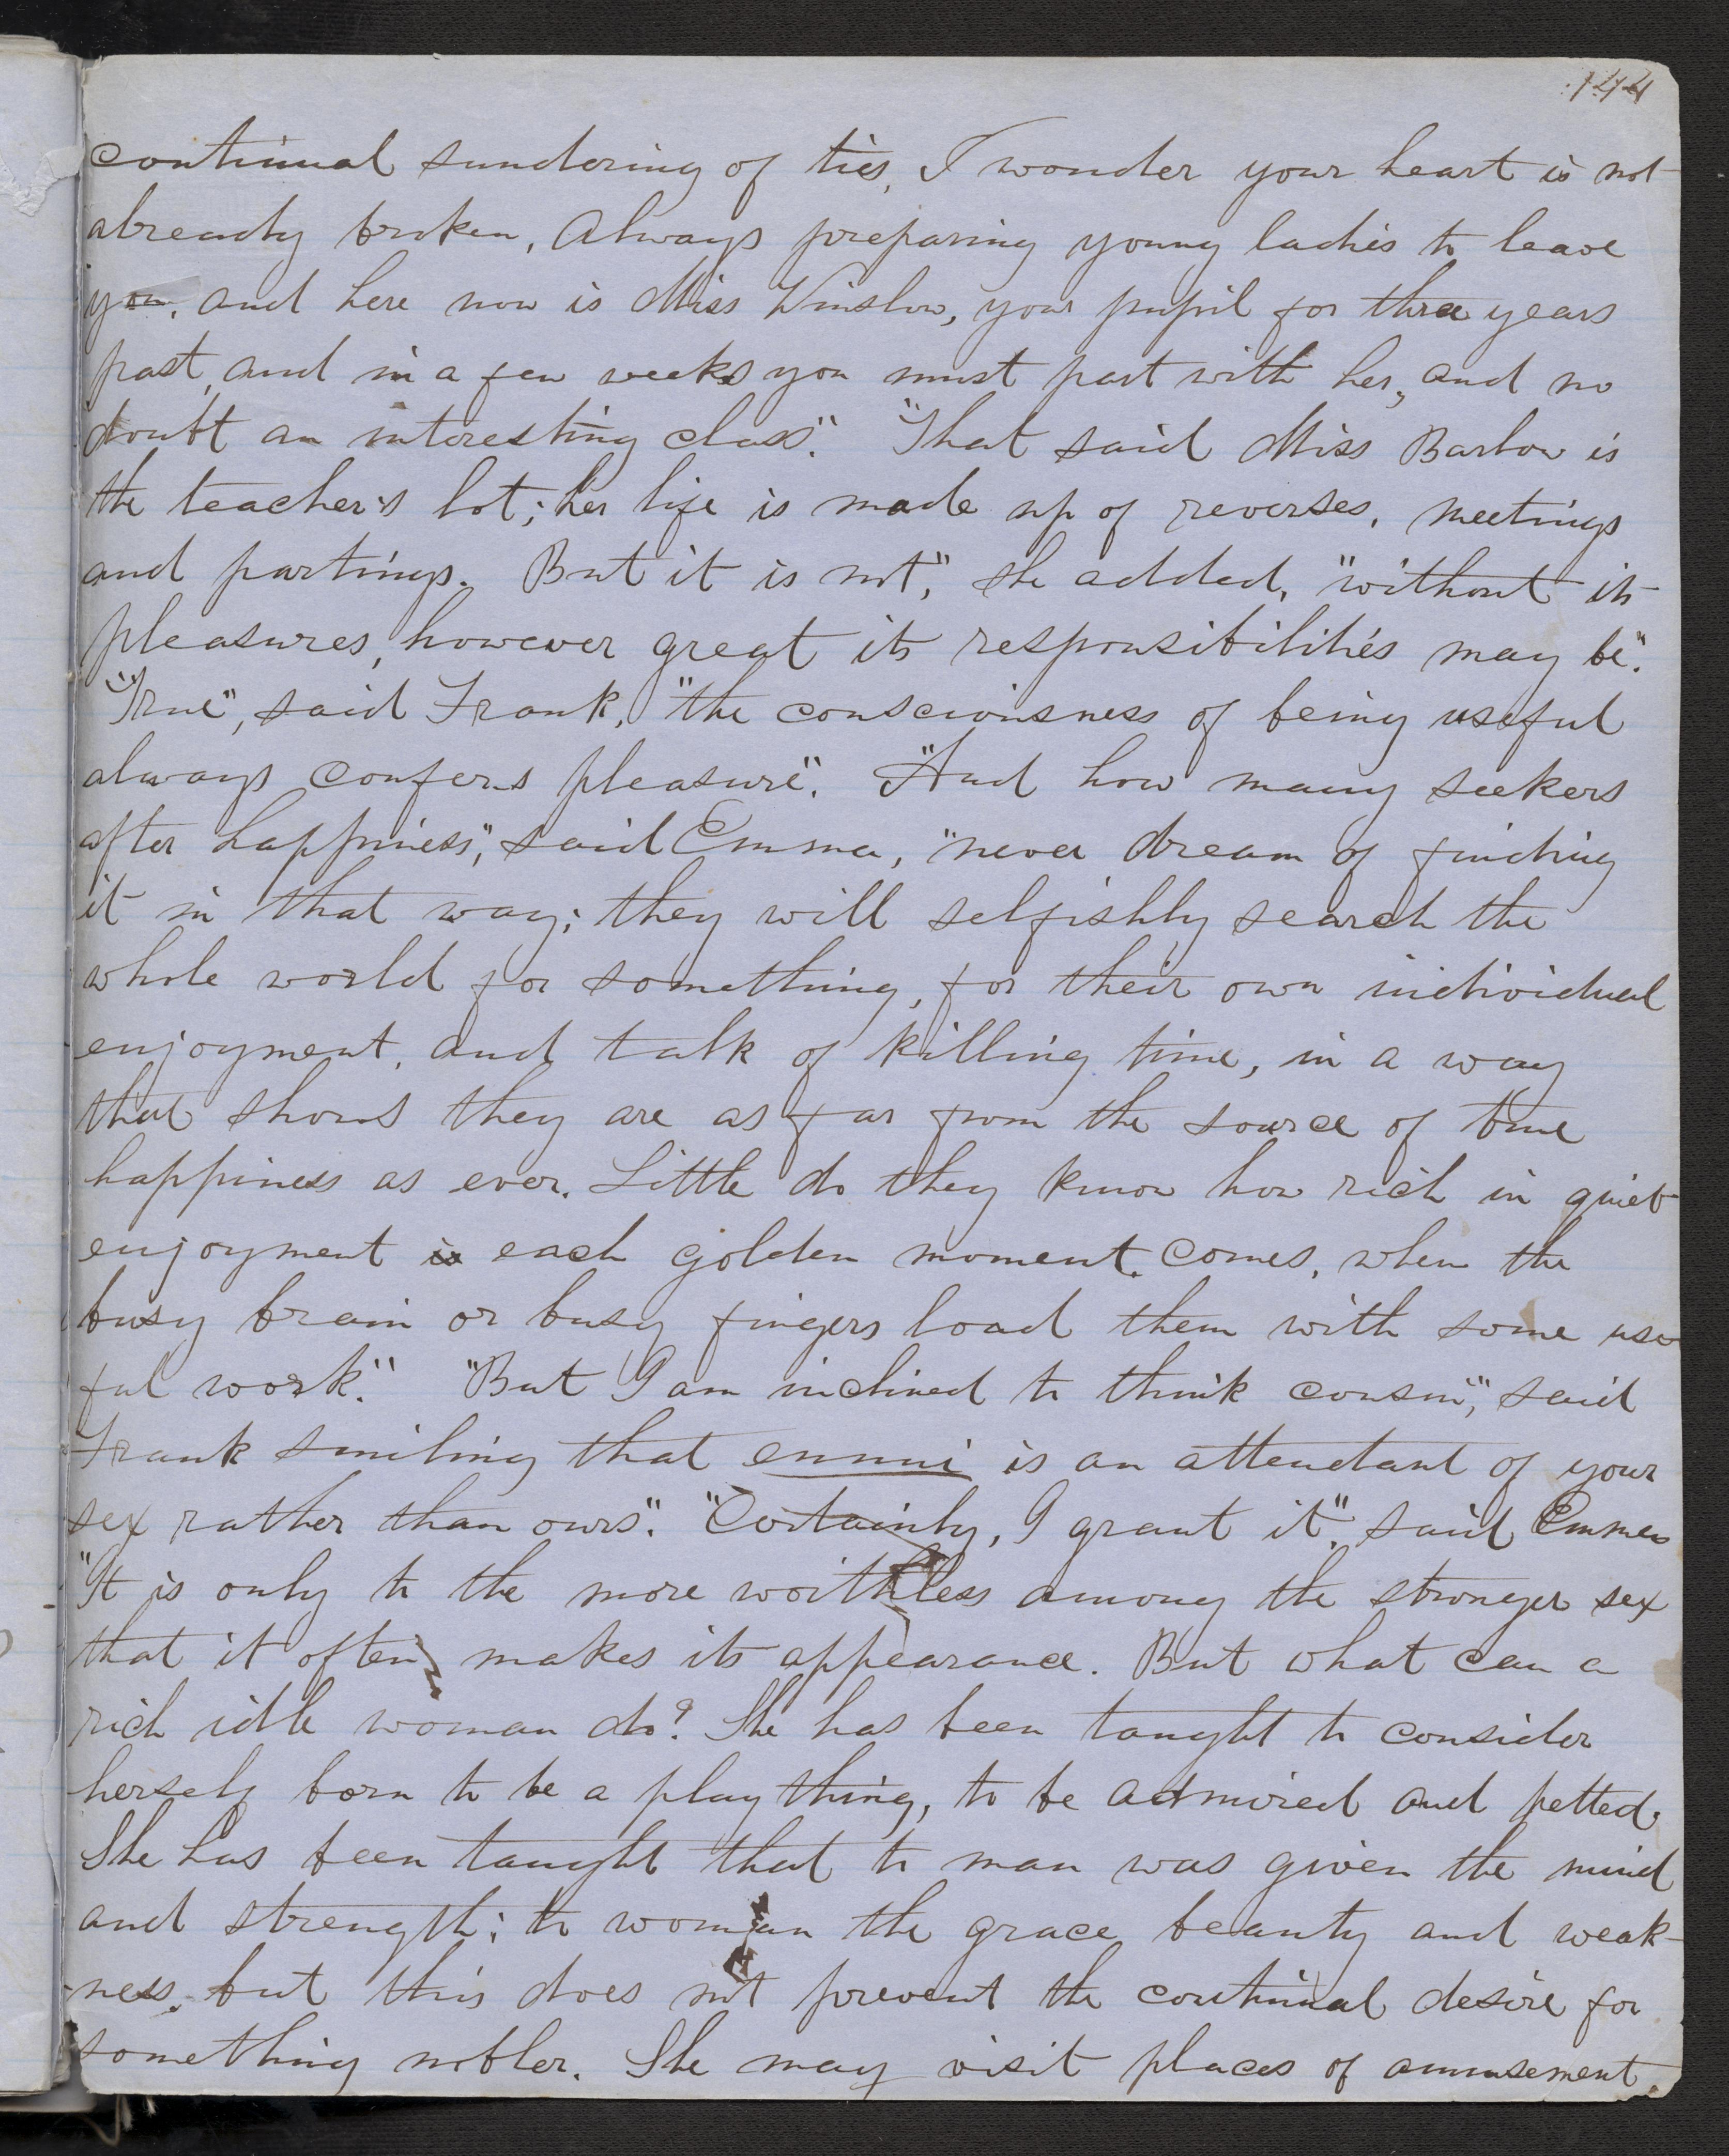 144
continual sundering of ties, I wonder your heart is not
already broken, Always preparing young ladies to leave
you, and here now is Miss Winslow, your pupil for three years
past, and in a few weeks you must part with her, and no
doubt an interesting class". "That said Miss Barlow is
the teacher's lot; her life is made up of reverses, meetings
and partings. But it is not", she added, "without its
pleasures, however great its responsibilities may be".
"True", said Frank, "the consciousness of being useful
always confers pleasure". "And how many seekers
after happiness", said Emma, "never dream of finding
it in that way; they will selfishly search the
whole world for something, for their own individual
enjoyment, and talk of killing time, in a way
that shows they are as far from the source of true
happiness as ever. Little do they know how rich in quiet
enjoyment is each golden moment comes, when the
busy brain or busy fingers load them with some use
ful work." "But I am inclined to think cousin", said
Frank smiling that ennui is an attendant of your
sex rather than ours". "Certainly, I grant it", said Emma
"It is only to the more worthless among the stronger sex
that it often makes its appearance. But what can a
rich idle woman do? She has been taught to consider
herself born to be a play thing, to be admired and petted.
She has been taught that to man was given the mind
and strength; to woman the grace beauty and weak-
ness, but this does not prevent the continual desire for
something nobler. She may visit places of amusement,